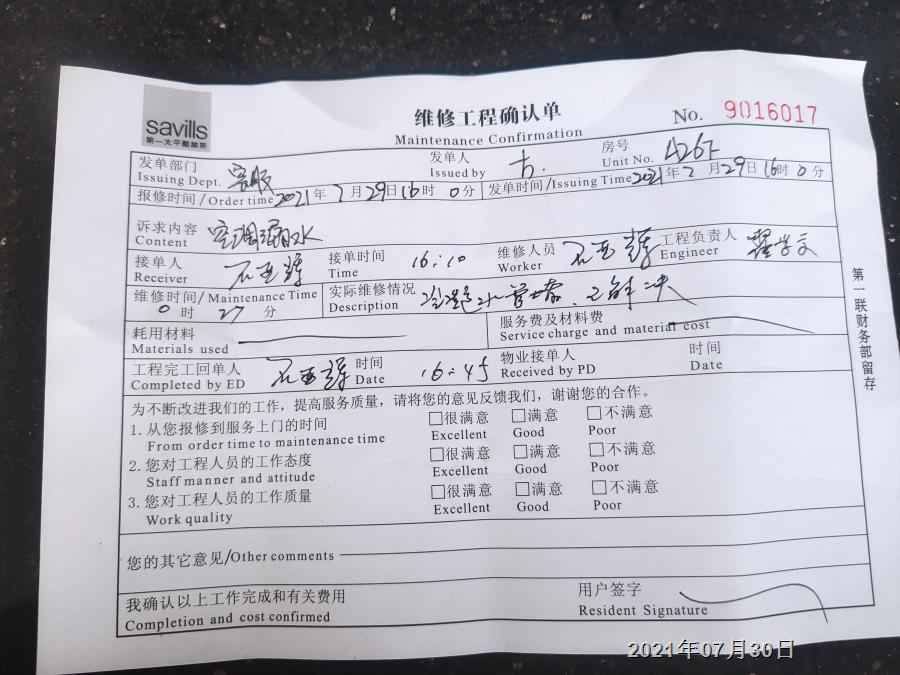 savills
第一太平戴维斯
维修工程确认单
Maintenance Confirmation
No. 9016017
发单部门 客服 发单人 房号 426F
Issuing Dept. Issued by Unit No.
报修时间/Order time 2021年7月29日16时0分 发单时间/Issuing Time 2021年7月29日16时0分
诉求内容 空调漏水
Content
接单人 接单时间 16:10 维修人员 工程负责人
Receiver Time Worker Engineer
维修时间/Maintenance Time 实际维修情况
0时27分 Description 水管堵
耗用材料 服务费及材料费
Materials used Service charge and material cost
工程完工回单人 时间 16:45 物业接单人 时间
Completed by ED Date Received by PD Date
为不断改进我们的工作，提高服务质量，请将您的意见反馈我们，谢谢您的合作。
1. 从您报修到服务上门的时间 □很满意 □满意 □不满意
From order time to maintenance time Excellent Good Poor
2. 您对工程人员的工作态度 □很满意 □满意 □不满意
Staff manner and attitude Excellent Good Poor
3. 您对工程人员的工作质量 □很满意 □满意 □不满意
Work quality Excellent Good Poor
您的其它意见/Other comments
我确认以上工作完成和有关费用 用户签字
Completion and cost confirmed Resident Signature
第一联财务部留存
2021年07月30日